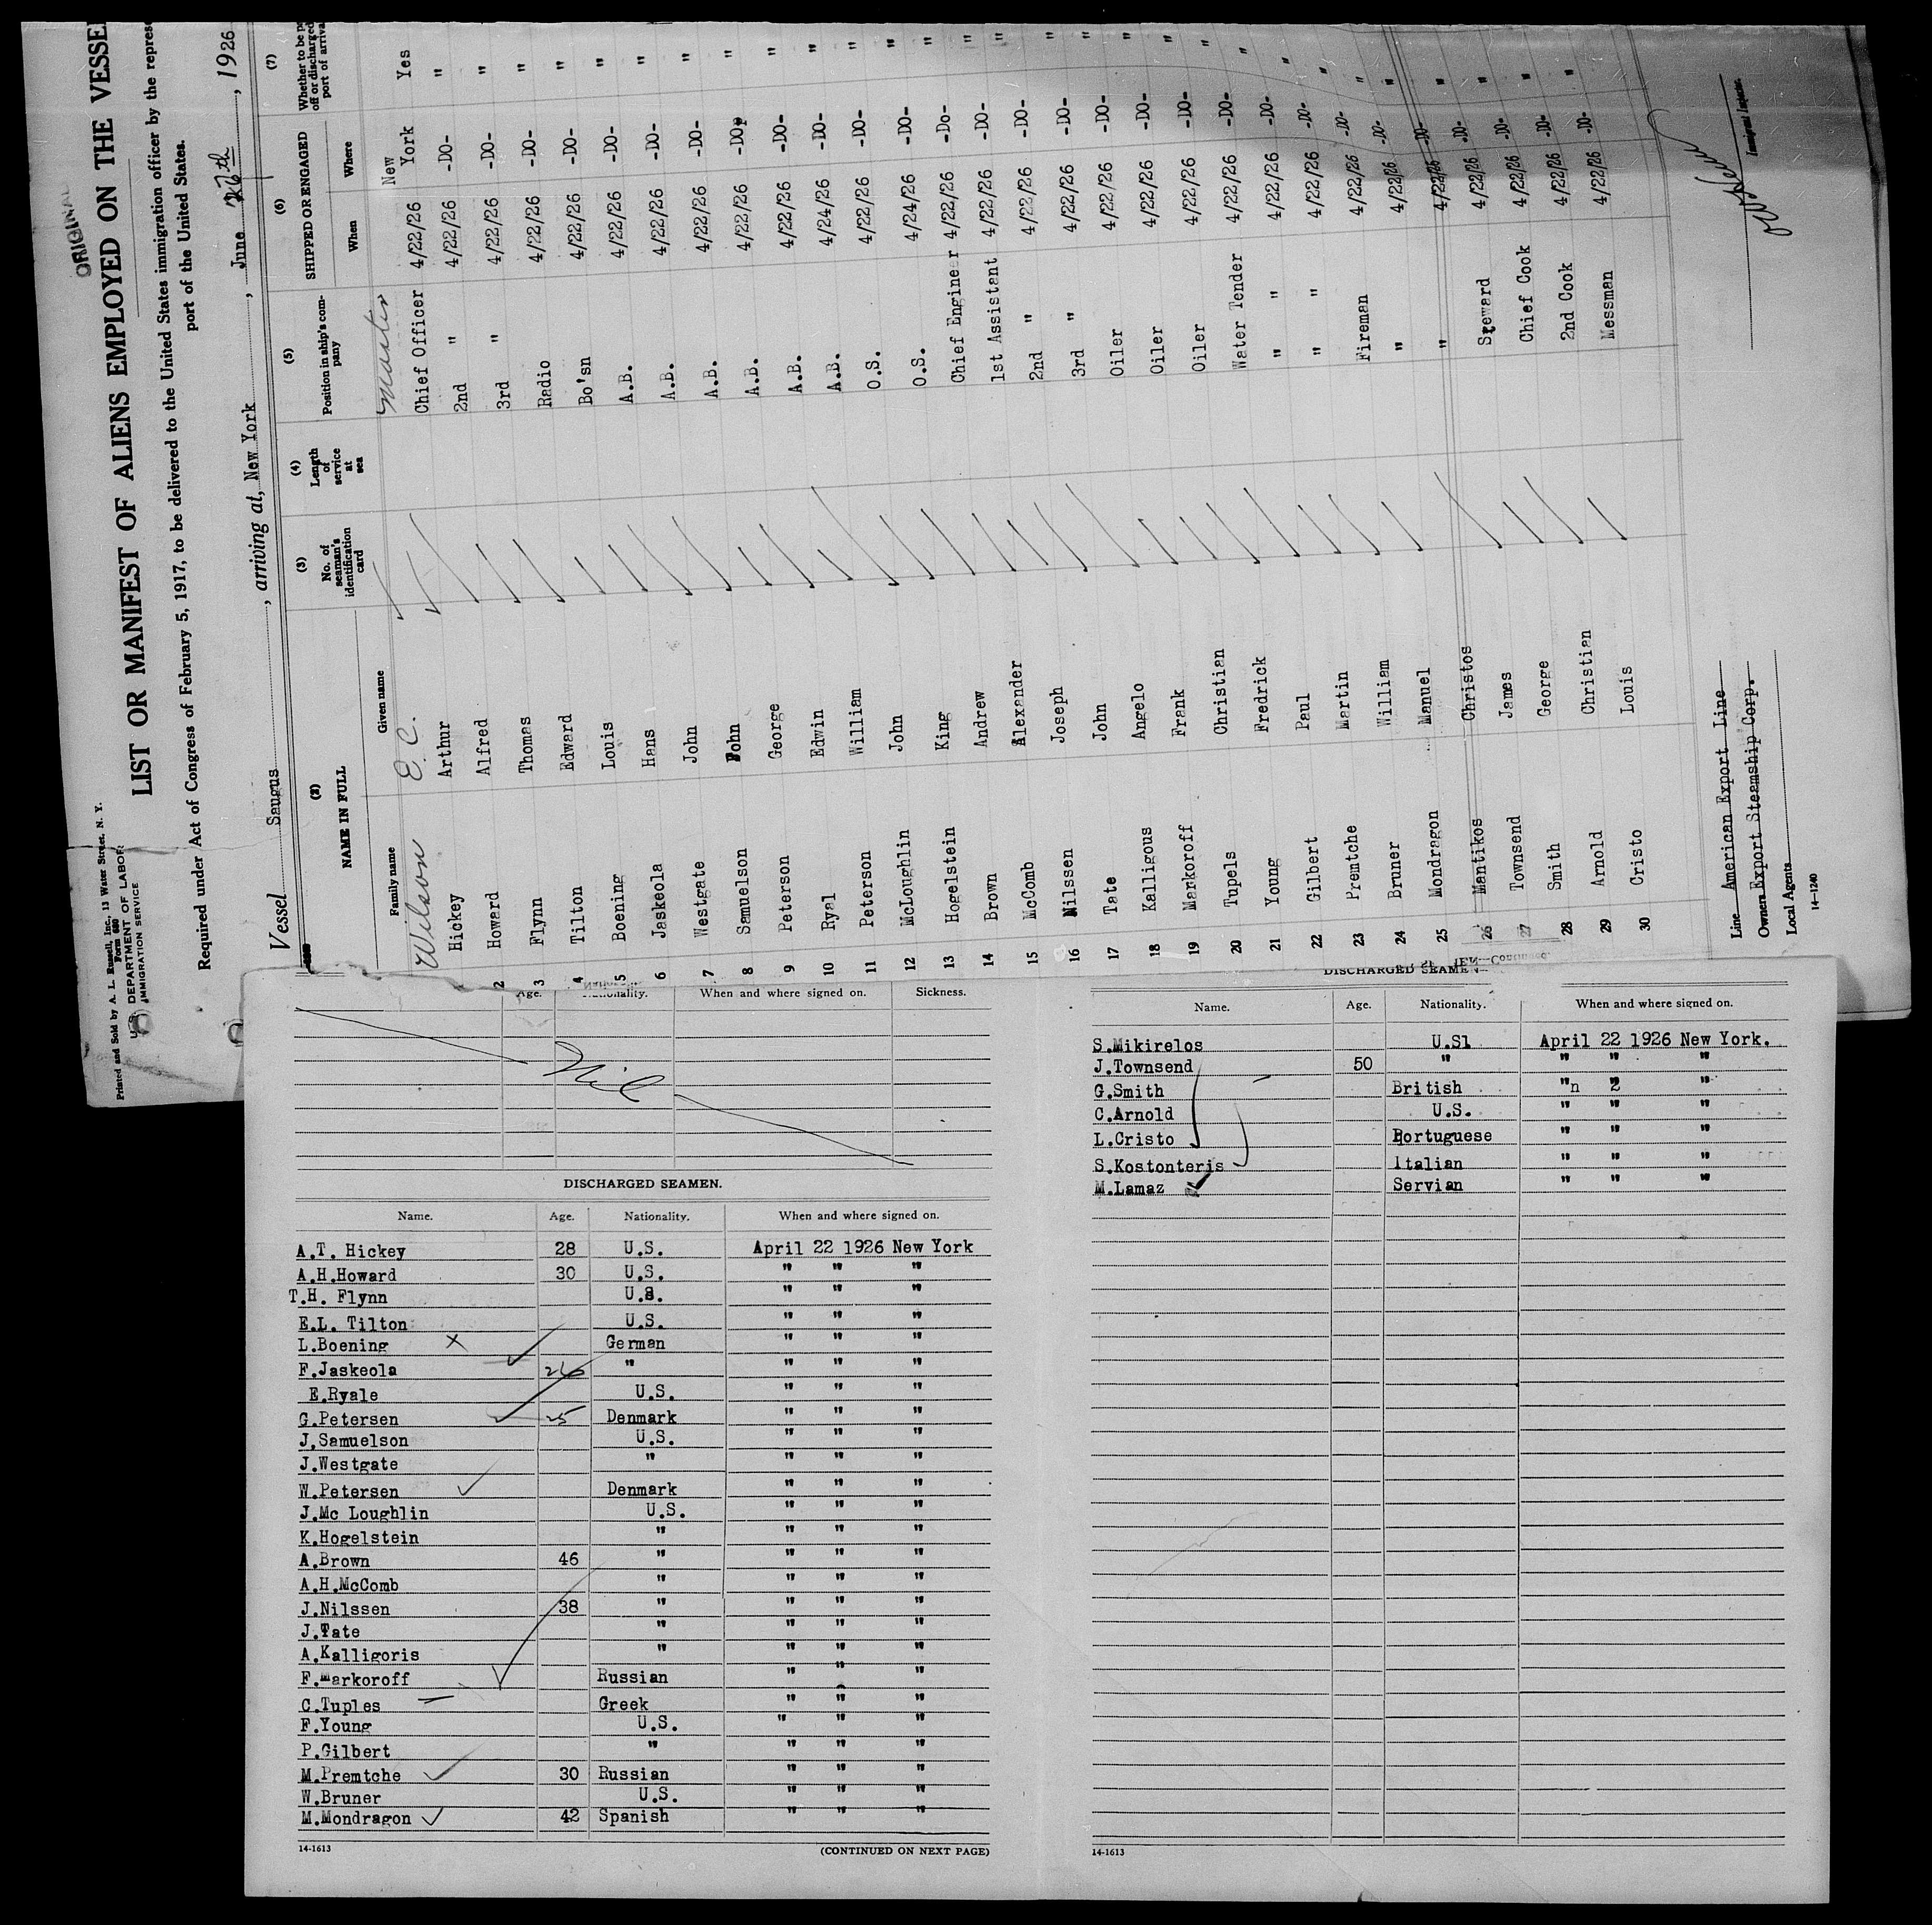 ORIGINAL
Printed and Sold by A. L. Russell, Inc., 13 Water Street, N. Y.
Form 680
U. S. DEPARTMENT OF LABOR
IMMIGRATION SERVICE
LIST OR MANIFEST OF ALIENS EMPLOYED ON THE VESSE
Required under Act of Congress of February 5, 1917, to be delivered to the United States immigration officer by the repres
port of the United States.
Vessel Saugus, arriving at, New York, June 27th, 1926
(2) (3) (4) (5) (6) (7)
NAME IN FULL No. of seaman's identification card Length of service at sea Position in ship's company SHIPPED OR ENGAGED Whether to be p off or discharged port of arriva
Family name Given name When Where
Wilson E. C. Master
Hickey Arthur Chief Officer 4/22/26 New York Yes
2 Howard Alfred 2nd " 4/22/26 -DO- "
3 Flynn Thomas 3rd " 4/22/26 -DO- "
4 Tilton Edward Radio 4/22/26 -DO- "
5 Boening Louis Bo'sn 4/22/26 -DO- "
6 Jaskeola Hans A.B. 4/22/26 -DO- "
7 Westgate John A.B. 4/22/26 -DO- "
8 Samuelson John A.B. 4/22/26 -DO- "
9 Peterson George A.B. 4/22/26 -DO- "
10 Ryal Edwin A.B. 4/22/26 -DO- "
11 Peterson William A.B. 4/24/26 -DO- "
12 McLoughlin John O.S. 4/22/26 -DO- "
13 Hogelstein King O.S. 4/24/26 -DO- "
14 Brown Andrew Chief Engineer 4/22/26 -Do- "
15 McComb Alexander 1st Assistant 4/22/26 -DO- "
16 Nilssen Joseph 2nd " 4/22/26 -DO- "
17 Tate John 3rd " 4/22/26 -DO- "
18 Kalligous Angelo Oiler 4/22/26 -DO- "
19 Markoroff Frank Oiler 4/22/26 -DO- "
20 Tupels Christian Oiler 4/22/26 -DO- "
21 Young Fredrick Water Tender 4/22/26 -DO- "
22 Gilbert Paul " 4/22/26 -DO- "
23 Premtche Martin " 4/22/26 -DO- "
24 Bruner William Fireman 4/22/26 -DO- "
25 Mondragon Manuel " 4/22/26 -DO- "
26 Mantikos Christos " 4/22/26 -DO- "
27 Townsend James Steward 4/22/26 -DO- "
28 Smith George Chief Cook 4/22/26 -DO- "
29 Arnold Christian 2nd Cook 4/22/26 -DO- "
30 Cristo Louis Messman 4/22/26 -DO- "
Line American Export Line
Owners Export Steamship Corp.
Local Agents
Immigrant Inspector.
14-1240
Age. Nationality. When and where signed on. Sickness.
Nil
DISCHARGED SEAMEN.
Name. Age. Nationality. When and where signed on.
A.T. Hickey 28 U.S. April 22 1926 New York
A.H.Howard 30 U.S. " " "
T.H. Flynn U.S. " " "
E.L. Tilton U.S. " " "
L.Boening X German " " "
F.Jaskeola 26 " " " "
E.Ryale U.S. " " "
G.Petersen 25 Denmark " " "
J.Samuelson U.S. " " "
J.Westgate " " " "
W.Petersen Denmark " " "
J.Mc Loughlin U.S. " " "
K.Hogelstein " " " "
A.Brown 46 " " " "
A.H.McComb " " " "
J.Nilssen 38 " " " "
J.Tate " " " "
A.Kalligoris " " " "
F.Markoroff Russian " " "
C.Tuples Greek " " "
F.Young U.S. " " "
P.Gilbert " " " "
M.Premtche 30 Russian " " "
W.Bruner U.S. " " "
M.Mondragon 42 Spanish " " "
14-1613 (CONTINUED ON NEXT PAGE)
DISCHARGED SEAMEN—Continued
Name. Age. Nationality. When and where signed on.
S.Mikirelos U.Sl April 22 1926 New York.
J.Townsend 50 " " " "
G.Smith British "n 2 "
C.Arnold U.S. " " "
L.Cristo Portuguese " " "
S.Kostonteris Italian " " "
M.Lamaz Servian " " "
14-1613